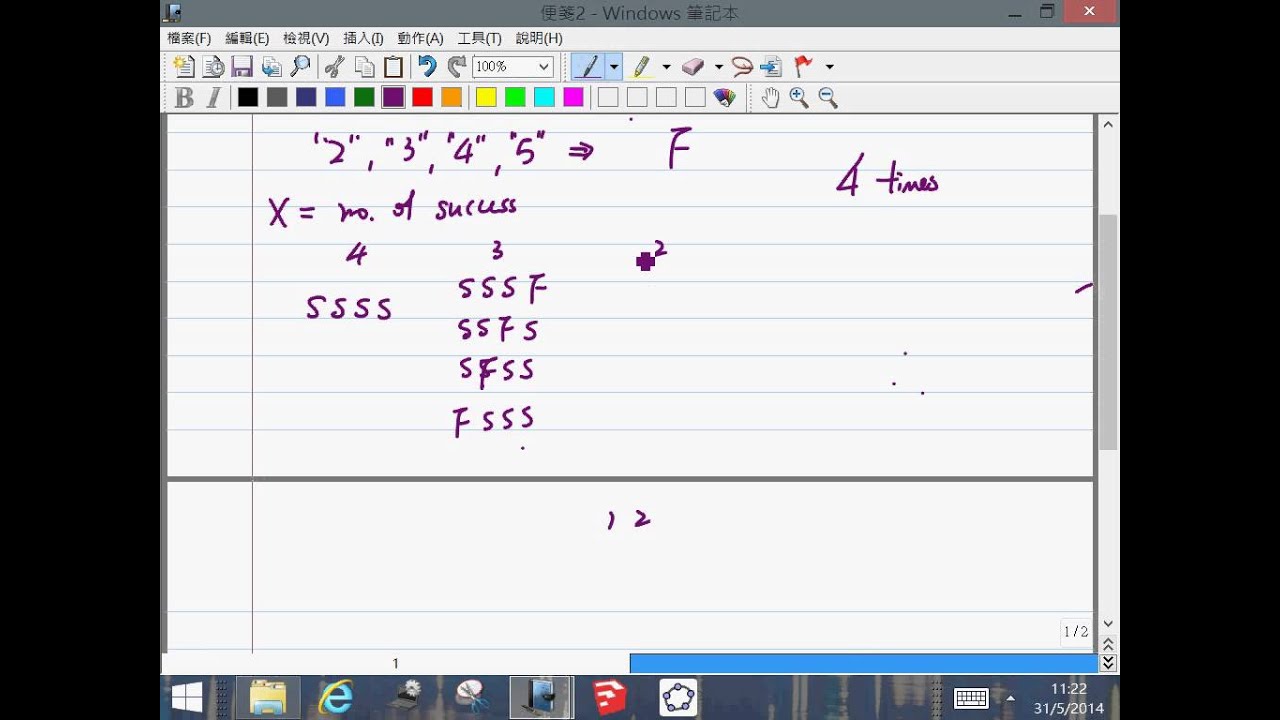 便箋2 - Windows 筆記本
檔案(F) 編輯(E) 檢視(V) 插入(I) 動作(A) 工具(T) 說明(H)
100%
B I
"2", "3", "4", "5" ⇒ F
4 times
X = no. of success
4 3 2
SSSS SSSF
SSFS
SFSS
FSSS
1 2
1/2
1
11:22
31/5/2014